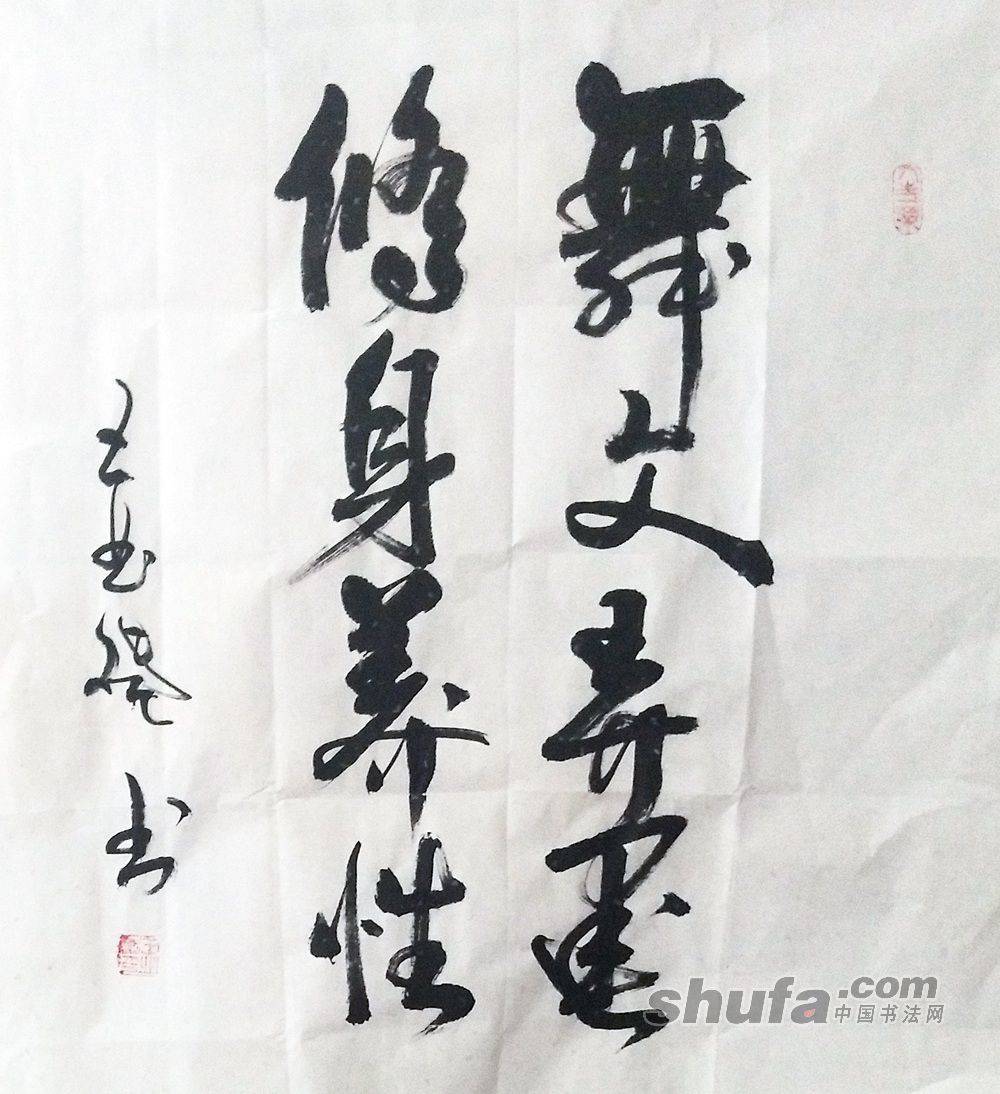 舞文弄墨
修身养性
书
shufa.com
中国书法网